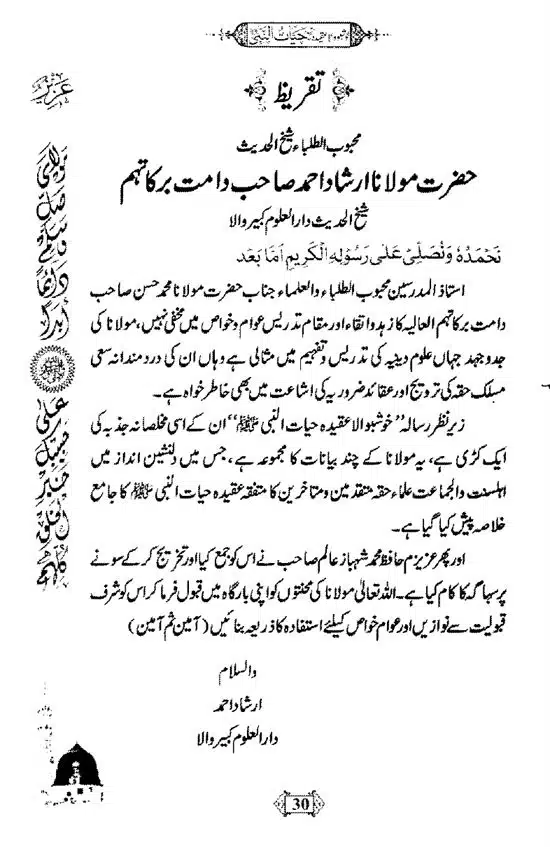 خوشبو والا عقیدہ حیات النبی ﷺ
تقریظ
محبوب الطلباء شیخ الحدیث
حضرت مولانا ارشاد احمد صاحب دامت برکاتہم
شیخ الحدیث دارالعلوم کبیر والا
نَحْمَدُہٗ وَنُصَلِّیْ عَلٰی رَسُوْلِہِ الْکَرِیْمِ اَمَّا بَعْد
استاذ المدرسین محبوب الطلباء والعلماء جناب حضرت مولانا محمد حسن صاحب
دامت برکاتہم العالیہ کا زہد و اتقاء اور مقام تدریس عوام و خواص میں مخفی نہیں، مولانا کی
جدوجہد جہاں علوم دینیہ کی تدریس و تفہیم میں مثالی ہے وہاں ان کی دردمندانہ سعی
مسلک حقہ کی ترویج اور عقائد ضروریہ کی اشاعت میں بھی خاطر خواہ ہے۔
زیر نظر رسالہ ’’خوشبو والا عقیدہ حیات النبی ﷺ‘‘ ان کے اسی مخلصانہ جذبہ کی
ایک کڑی ہے، یہ مولانا کے چند بیانات کا مجموعہ ہے، جس میں دلنشین انداز میں
اہلسنت والجماعت علماء حقہ متقدمین و متاخرین کا متفقہ عقیدہ حیات النبی ﷺ کا جامع
خلاصہ پیش کیا گیا ہے۔
اور پھر عزیزم حافظ محمد شہباز عالم صاحب نے اس کو جمع کیا اور تخریج کر کے سونے
پر سہاگہ کا کام کیا ہے۔ اللہ تعالیٰ مولانا کی محنتوں کو اپنی بارگاہ میں قبول فرما کر اس کو شرف
قبولیت سے نوازیں اور عوام خواص کیلئے استفادہ کا ذریعہ بنائیں (آمین ثم آمین)
والسلام
ارشاد احمد
دارالعلوم کبیر والا
30
عزیز
مولای صل وسلم دائما ابدا
ﷺ
علی حبیبک خیر الخلق کلھم